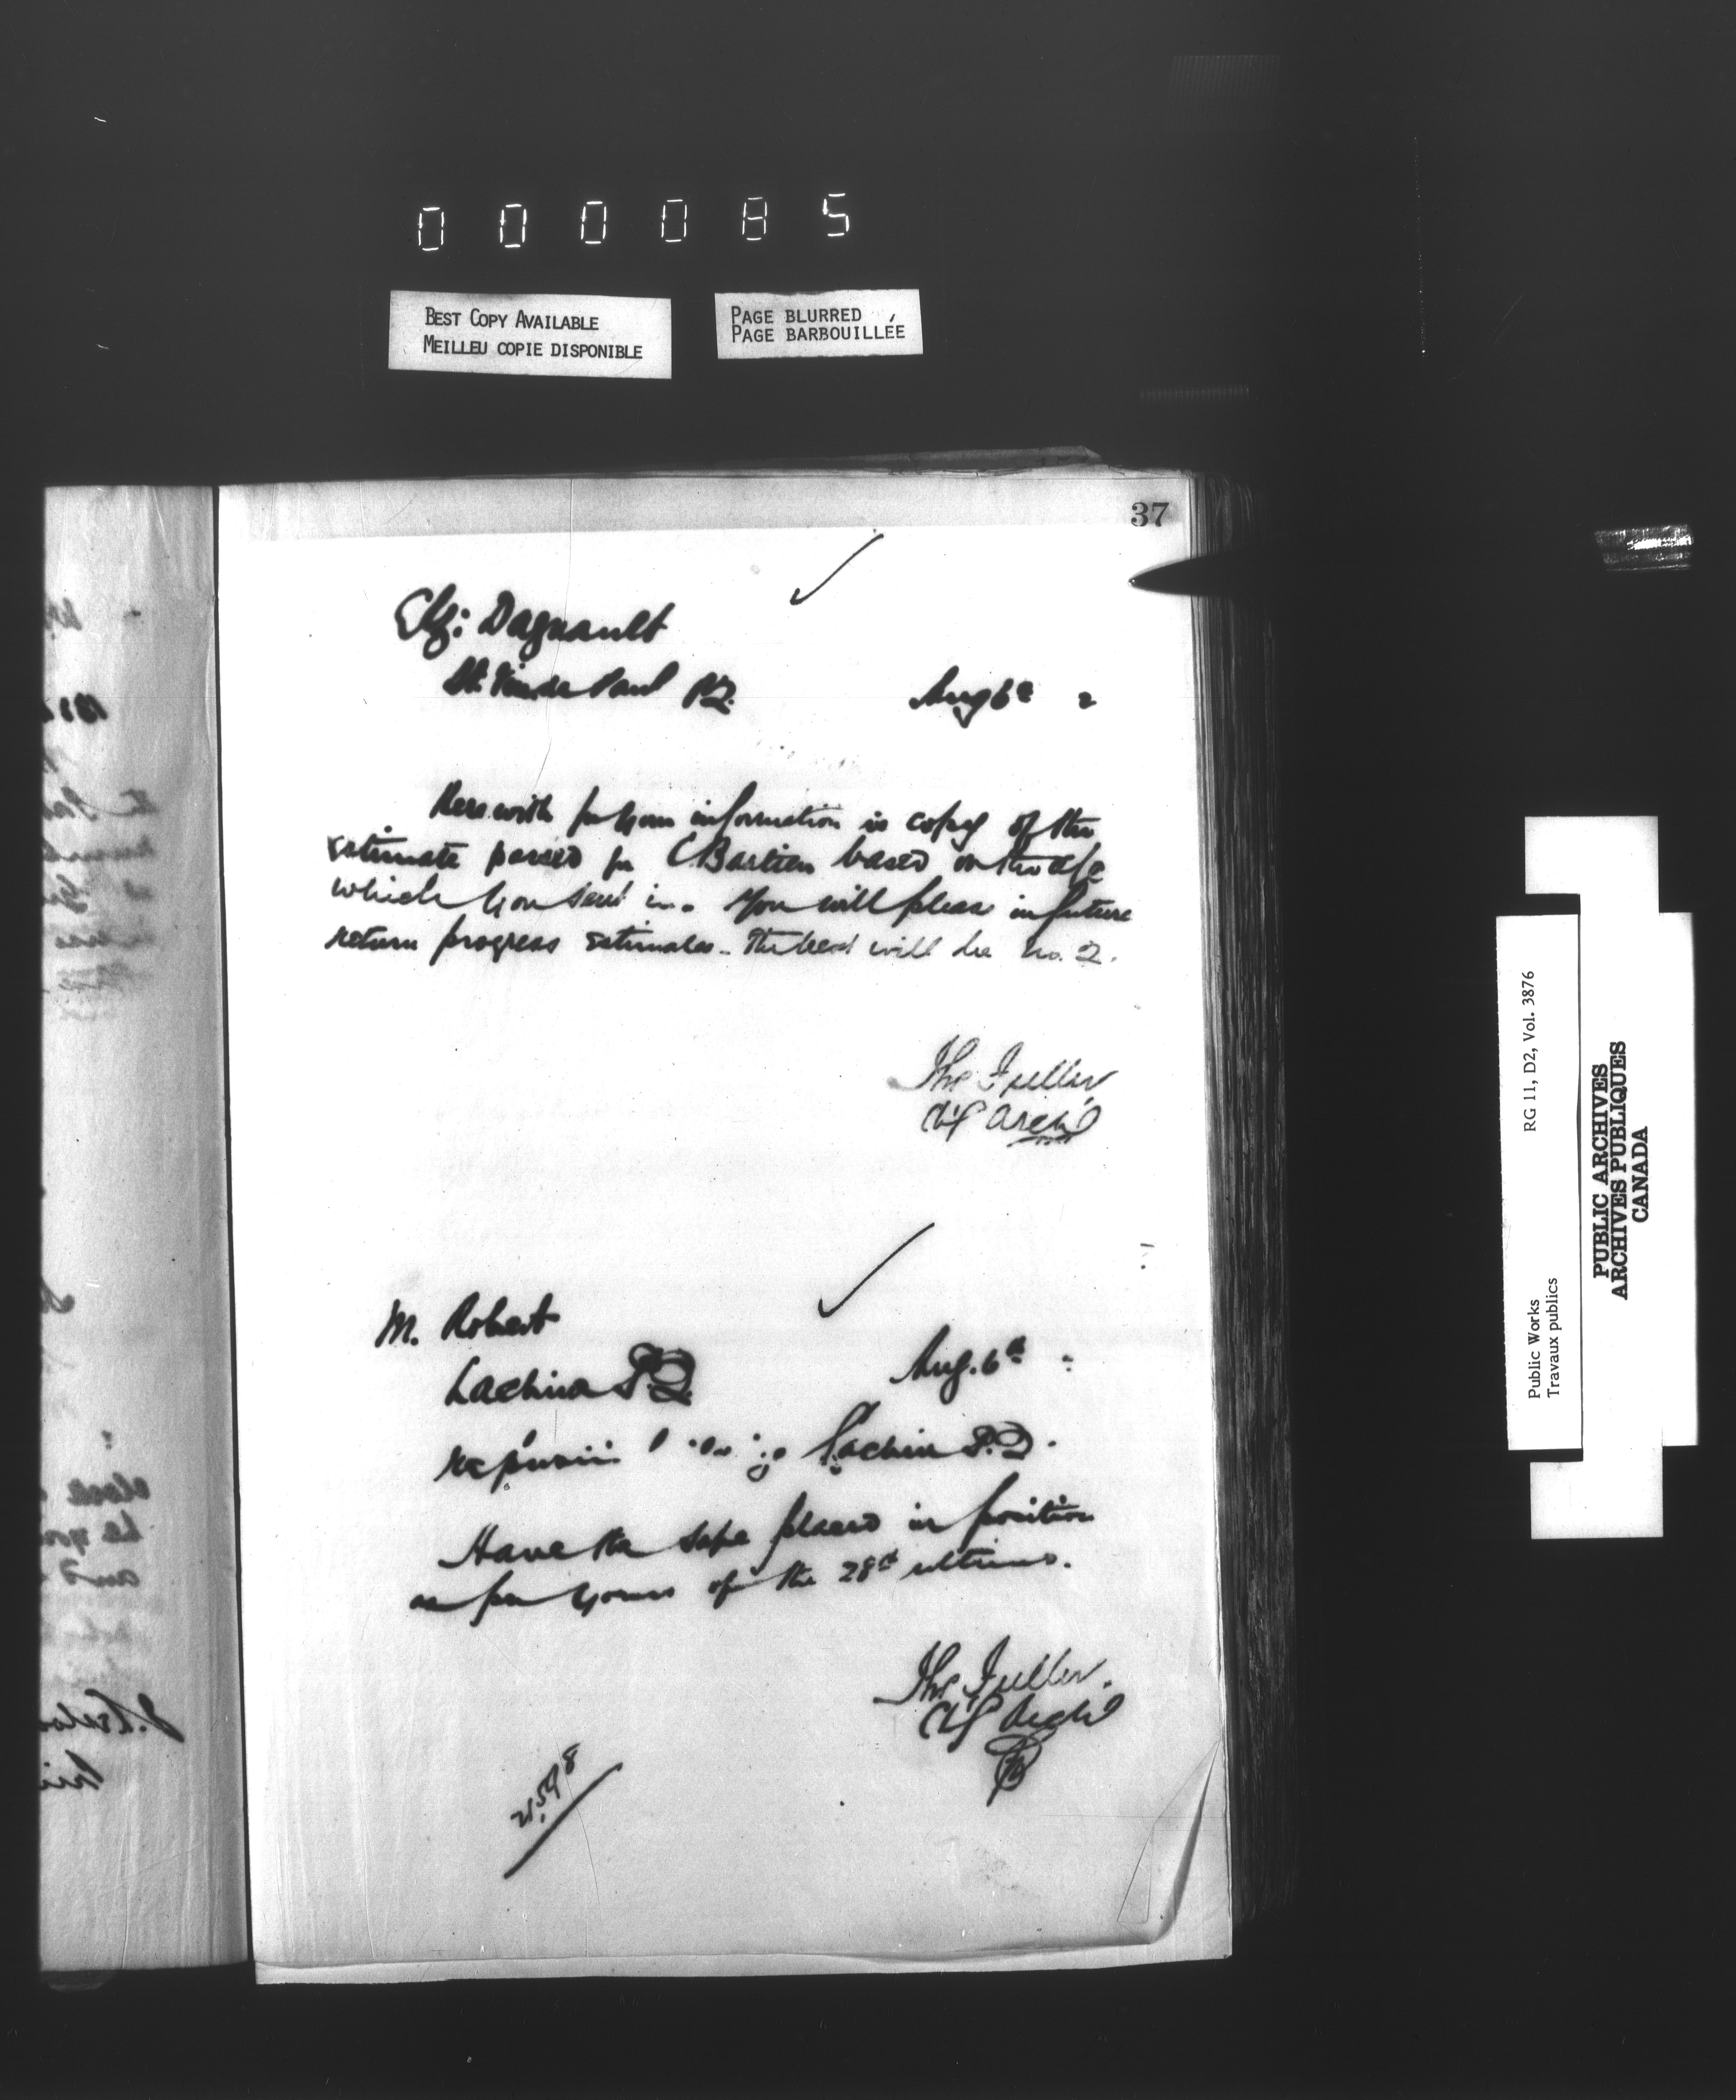 000085
BEST COPY AVAILABLE
MEILLEU COPIE DISPONIBLE
PAGE BLURRED
PAGE BARBOUILLÉE
37
Daguault
St. Vin de Paul P.Q. Aug 6th 2
Herewith for your information is copy of the
estimate passed for C Bastien based on the a/c
which you sent in. You will please in future
return progress estimates. The next will be No. 2.
Thos Fuller
Chf Archt
M. Robert
Lachine P.Q. Aug. 6th
Lachine P.Q.
Have the safe placed in position
as per yours of the 28th ultimo.
Thos Fuller.
Chf Archt
Public Works RG 11, D2, Vol. 3876
Travaux publics
PUBLIC ARCHIVES
ARCHIVES PUBLIQUES
CANADA